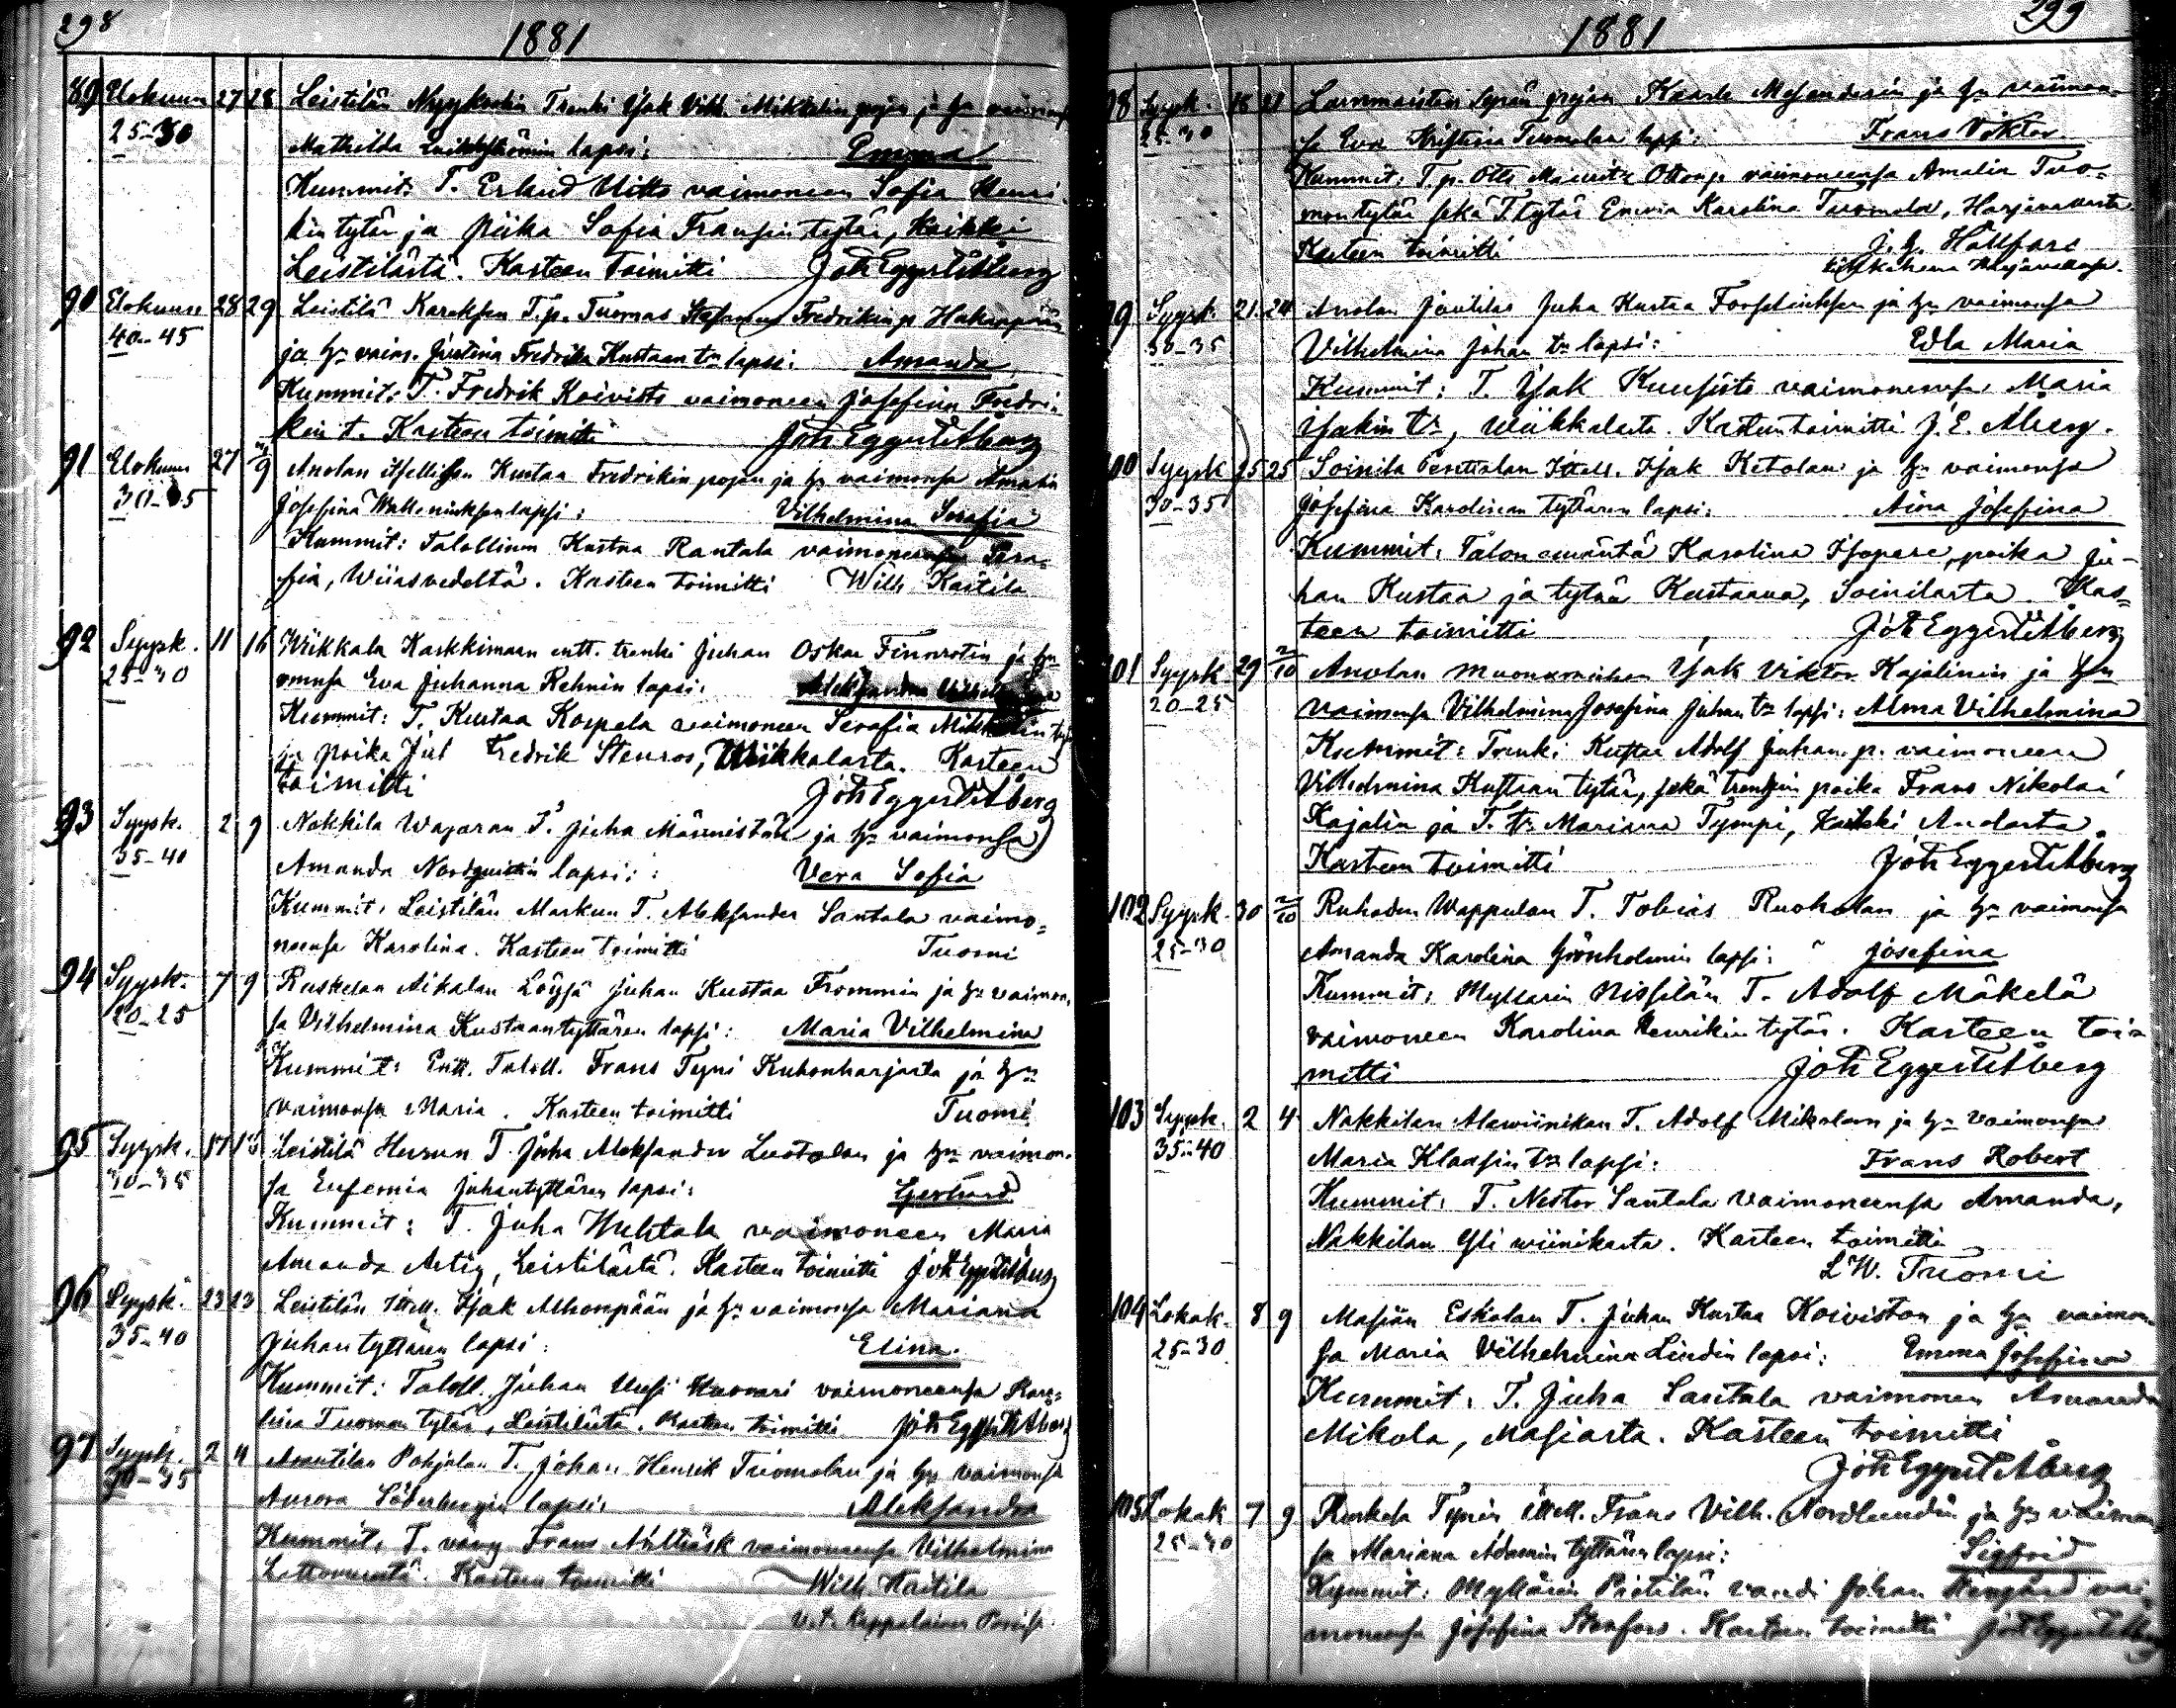 298
1881
89 Elokuun 27 28 Leistilän Nyykoskin Trenki Isak Vilh. Mikkelin pojan ja hn vaimonsa
25-30 Mathilda lapsi: Emma
Kummit: T. Erland Uitto vaimoneen Sofia Henri-
kin tytär ja piika Sofia Fransin tytär, Kaikki
Leistilästä. Kasteen toimitti Joh Eggert Åberg
90 Elokuun 28 29 Leistilä Kareksen T.p. Tuomas Fredrikin p. Hakaapään
40-45 ja hn vaim. Justina Fredrika Kustaan tn lapsi: Amanda
Kummit: T. Fredrik Koivisto vaimoneen Josefina Fredri-
kin t. Kasteen toimitti Joh Eggert Åberg
91 Elokuun 27 9 Anolan itsellisen Kustaa Fredrikin pojan ja hn vaimonsa Amalia
30-35 Josefina lapsi: Vilhelmina Serafia
Kummit: Talollinen Kustaa Rantala vaimoneensa Sera-
fia, Wiiasvedeltä. Kasteen toimitti Wilh. Kastila
92 Syysk. 11 16 Wiikkala Kaskkimaan entt. trenki Juhan Oskar ja hn
25-30 Eva Juhanna Rehnin lapsi: Aleksandra
Kummit: T. Kustaa Korpela vaimoneen Serafia Mikkelin tytär
ja poika Juh Fredrik Stenros, Wiikkalasta. Kasteen
toimitti Joh Eggert Åberg
93 Syysk. 2 9 Nakkila Wagaran T. Juha Männistön ja hn vaimonsa
35-40 Amanda Nordqvistin lapsi: Vera Sofia
Kummit: Leistilän Markun T. Aleksander Santala vaimo-
neensa Karolina. Kasteen toimitti Tuomi
94 Syysk. 7 9 Ruskelan Aikalan Löysä Juhan Kustaa Frommin ja hn vaimon-
20-25 sa Vilhelmina Kustaantyttären lapsi: Maria Vilhelmina
Kummit: Entt. Taloll. Frans Tyni Kukonharjasta ja hn
vaimonsa Maria. Kasteen toimitti Tuomi
95 Syysk. Leistilä T. Juha Aleksander Luotolan ja hn vaimon-
30-35 sa Eufemia Juhantyttären lapsi: Gertrud
Kummit: T. Juha Huhtala vaimoneen Maria
Amanda Artig, Leistilästä. Kasteen toimitti Joh Eggert Åberg
96 Syysk. 23 23 Leistilän Itsell. Isak Alhonpään ja hn vaimonsa Mariana
35-40 Juhan tyttären lapsi: Elina.
Kummit: Taloll. Juhan Uusi Kuovari vaimoneensa Karo-
lina Tuoman tytär, Leistilästä. Kasteen toimitti Joh Eggert Åberg
97 Syysk. 2 4 Anntilan Pohjalan T. Johan Henrik Tuomolan ja hn vaimonsa
30-35 Aurora Söderbergin lapsi: Aleksandra
Kummit: T. vävy Frans vaimoneensa Vilhelmina
Kasteen toimitti Wilh. Kastila
V.t. Kappalainen Porissa.
299
1881
98 Syysk. 18 21 Kaarle ja hn vaimon-
25-30 sa Eva Kristiina Tuomolan lapsi: Frans Viktor
Kummit: T.p. Otto Mauritz Otton p. vaimoneensa Amalia Tuo-
mon tytär sekä T. tytär Emma Karolina Tuomola, Harjavalta
Kasteen toimitti J. G. Hällfors
kirkkoherra Harjavallassa.
99 Syysk. 21 24 Anolan Juutilan Juha Kustaa ja hn vaimonsa
30-35 Vilhelmina Johan tn lapsi: Edla Maria
Kummit: T. Isak Kuusisto vaimoneensa Maria
Isakin tr, Wiikkalasta. Kasteen toimitti J. E. Åberg.
100 Syysk 25 25 Soinila Penttalan Itsell. Isak Ketolan ja hn vaimonsa
30-35 Josefina Karolinan tyttären lapsi: Aina Josefina
Kummit: Talon emäntä Karolina Isopere, poika Ju-
han Kustaa ja tytär Kustaava, Soinilasta. Kas-
teen toimitti Joh Eggert Åberg
101 Syysk 29 2/10 Anolan Muonamiehen Isak Viktor Kajalinin ja hn
20-25 vaimonsa Vilhelmina Josefina Juhan tn lapsi: Alma Vilhelmina
Kummit: Trenki Kustaa Adolf Juhan p. vaimoneen
Vilhelmina Kustaan tytär, sekä trenkin poika Frans Nikolai
Kajalin ja T. tr Mariana Tympi, Kaikki Anolasta.
Kasteen toimitti Joh Eggert Åberg
102 Syysk. 30 2/10 Ruhaden Wappulan T. Tobias Ruoholan ja hn vaimonsa
25-30 Amanda Karolina Grönholmin lapsi: Josefina
Kummit: Myllärin Nissilän T. Adolf Mäkelä
vaimoneen Karolina Henrikin tytär. Kasteen toi-
mitti Joh Eggert Åberg
103 Syysk. 2 4 Nakkilan Alawiinikan T. Adolf Mikolan ja hn vaimonsa
35-40 Maria Klaasin tn lapsi: Frans Robert
Kummit: T. Nestor Santala vaimoneensa Amanda,
Nakkilan Yli wiinikasta. Kasteen toimitti
L W. Tuomi
104 Lokak. 8 9 Masian Eskolan T. Juhan Kustaa Koiviston ja hn vaimon
25-30 sa Maria Vilhelmina Lindin lapsi: Emma Josefina
Kummit: T. Juha Santala vaimoneen Amanda
Mikola, Masiasta. Kasteen toimitti
Joh Eggert Åberg
105 Lokak 7 9 Ruskela Tynin Itsell. Frans Vilh. Nordlundin ja hn vaimon
25-30 sa Mariana Adamin tyttären lapsi: Sigfrid
Kummit: Myllärin Pietilän vävy Johan vai
moneensa Josefina Stenfors. Kasteen toimitti Joh Eggert Åberg